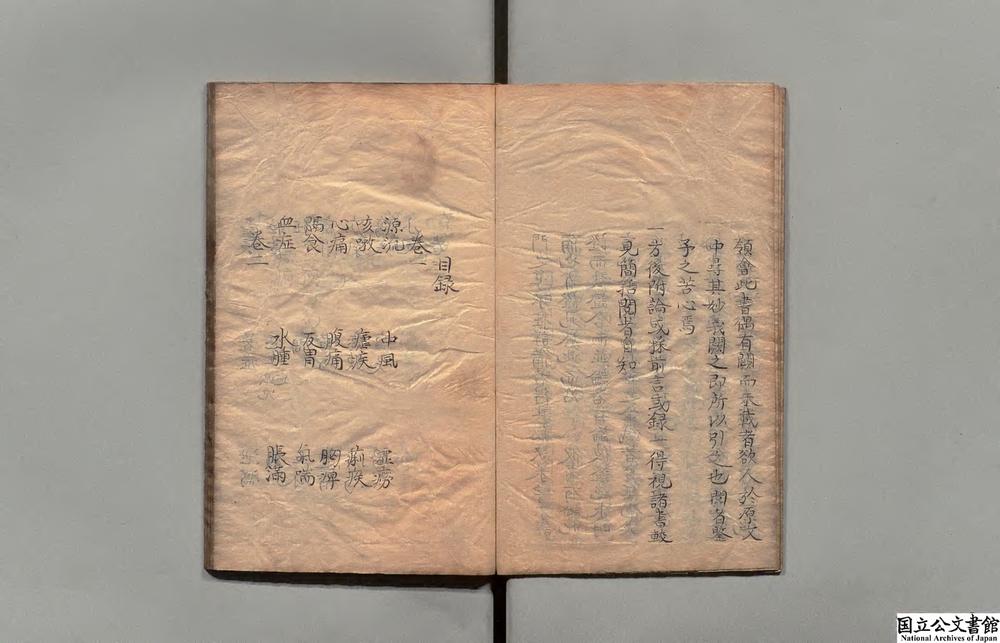 領會此書偶有闕而未載者欲人於原文
中尋其妙義闕之即所以引之也閱者鑒
予之苦心焉
一方後附論或採前言或錄一得視諸書較
見簡括閱者自知
目録
卷一
源流 中風 虛癆
咳嗽 瘧疾 痢疾
心痛 腹痛 胸痺
隔食 反胃 氣喘
血症 水腫 脹滿
卷二
国立公文書館
National Archives of Japan